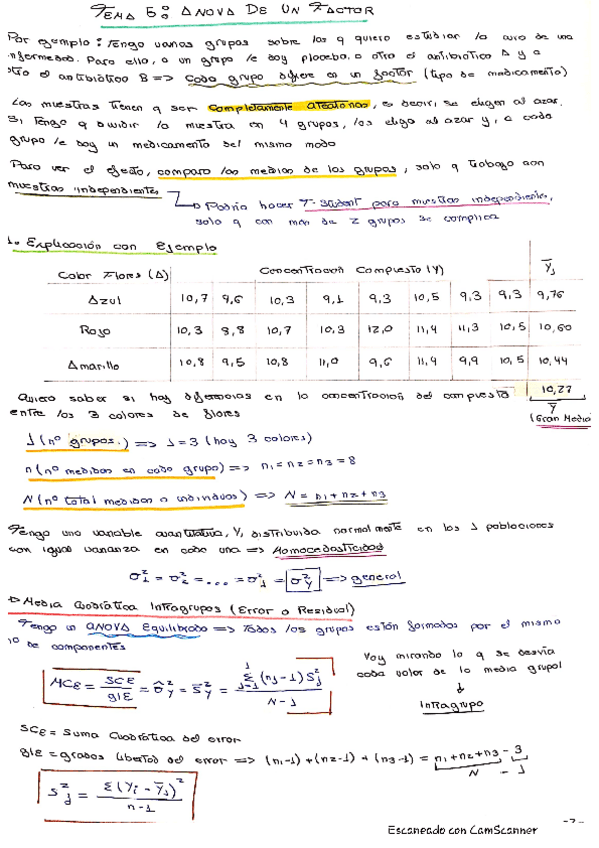 TEMA 5: ANOVA DE UN FACTOR
Por ejemplo: Tengo varios grupos sobre los q quiero estudiar la cura de una
enfermedad. Para ello, a un grupo le doy placebo, a otro el antibiótico A y a
otro el antibiótico B => Cada grupo difiere en un factor (tipo de medicamento)
Las muestras tienen q ser completamente aleatorias, es decir, se eligen al azar.
Si tengo q dividir la muestra en 4 grupos, los elijo al azar y, a cada
grupo le doy un medicamento del mismo modo
Para ver el efecto, comparo las medias de los grupos, solo q trabajo con
muestras independientes
Podría hacer T-Student para muestras independientes,
solo q con más de 2 grupos se complica
1. Explicación con Ejemplo
Color Flores (A) Concentración Compuesto (Y) Ȳj
Azul 10,7 9,6 10,3 9,1 9,3 10,5 9,3 9,3 9,76
Rojo 10,3 8,8 10,7 10,3 12,0 11,4 11,3 10,5 10,60
Amarillo 10,8 9,5 10,8 11,0 9,6 11,4 9,9 10,5 10,44
Quiero saber si hay diferencias en la concentración del compuesto 10,27
entre los 3 colores de flores Ȳ
(Gran Media)
J (nº grupos) => J = 3 (hay 3 colores)
n (nº medidas en cada grupo) => n1 = n2 = n3 = 8
N (nº total medidas o individuos) => N = n1 + n2 + n3
Tengo una variable cuantitativa, Y, distribuida normalmente en las J poblaciones
con igual varianza en cada una => Homocedasticidad
σ²1 = σ²2 = ... = σ²J = σ²Y => general
Media Cuadrática Intragrupos (Error o Residual)
Tengo un ANOVA Equilibrado => Todos los grupos están formados por el mismo
nº de componentes
MCE = SCE/glE = σ̂²Y = S̄²Y = Σ(j=1, J) (nj-1) S²j / N-J
Voy mirando lo q se desvía
cada valor de la media grupal
↓
Intragrupo
SCE = Suma Cuadrática del error
glE = grados libertad del error => (n1-1) + (n2-1) + (n3-1) = n1+n2+n3 - 3
N - J
S²j = Σ(Yi - Ȳj)² / n-1
Escaneado con CamScanner